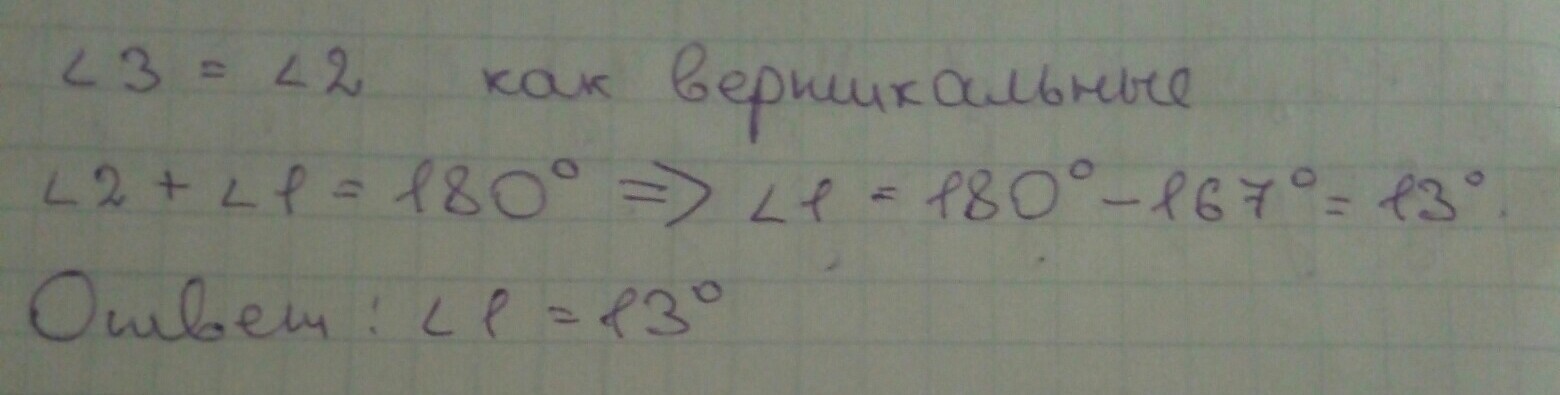 ∠3 = ∠2 как вертикальные
∠2 + ∠1 = 180° => ∠1 = 180° - 167° = 13°.
Ответ: ∠1 = 13°